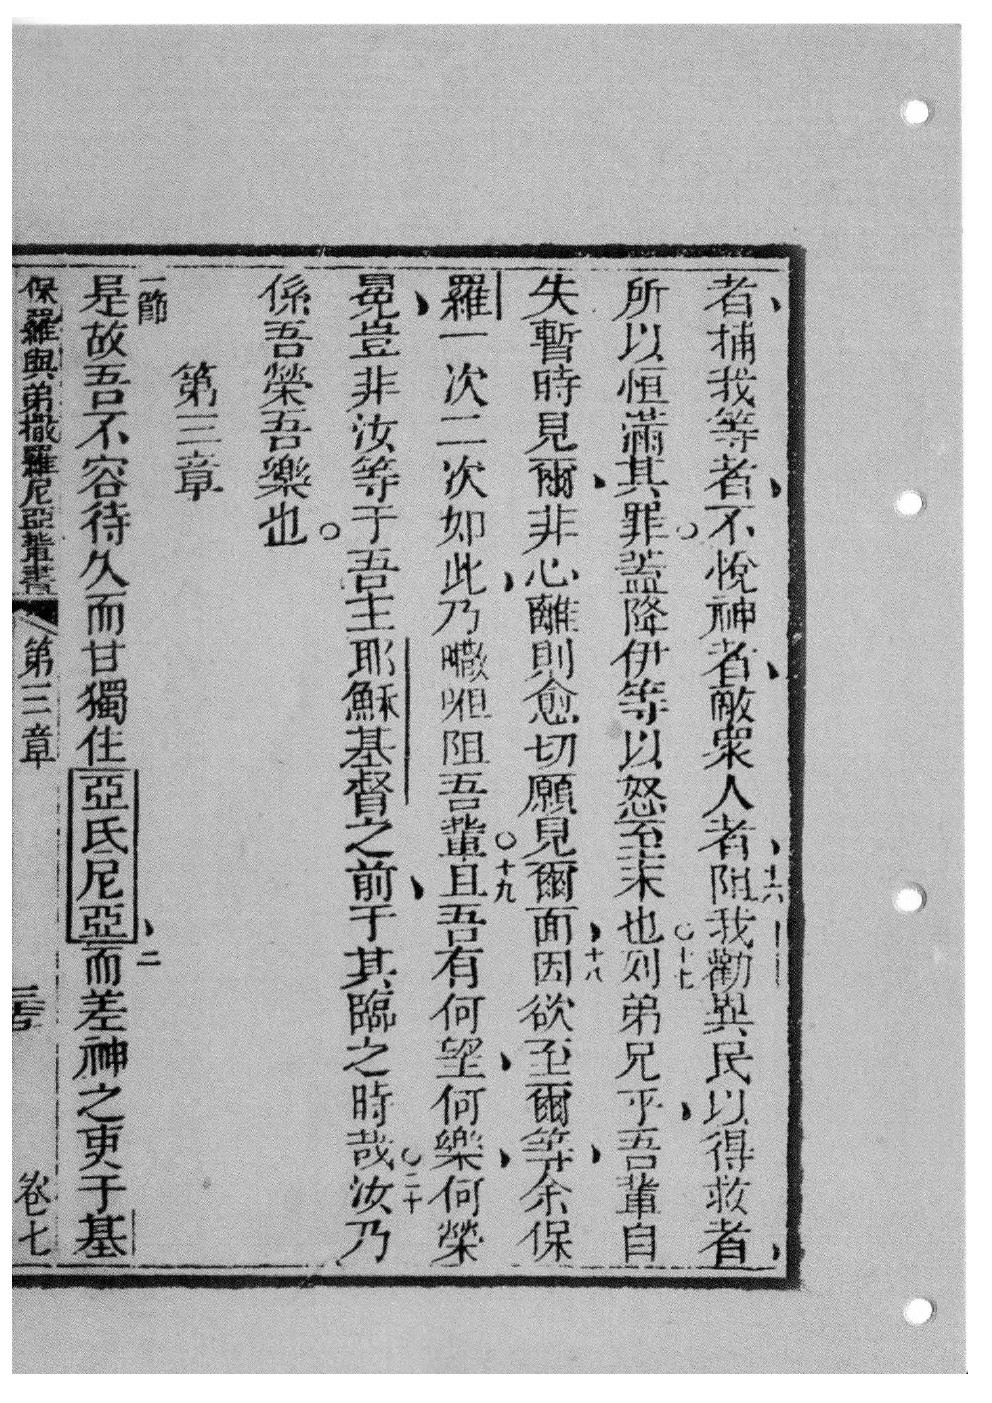 者捕我等者不悅神者敵衆人者阻我勸與民以得救者
十六
所以恒滿其罪蓋降伊等以怒至末也列弟兄乎吾輩自
十七
失暫時見爾非心離則愈切願見爾面因欲至爾等余保
十八
羅一次二次如此乃㘔呾阻吾輩且吾有何望何樂何榮
十九
冕豈非汝等于吾主耶穌基督之前于其臨之時哉汝乃
二十
係吾榮吾樂也
第三章
一節
是故吾不容待久而甘獨住亞氏尼亞而差神之吏于基
二
保羅與弟撒羅尼亞輩書
第三章
卷七